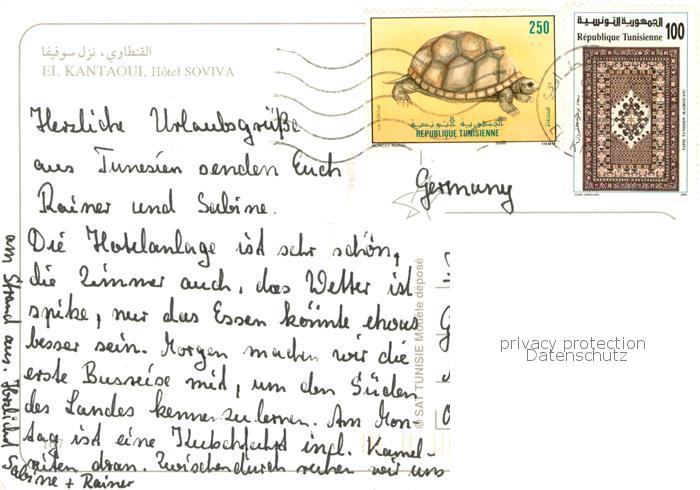 القنطاوي، نزل سوفيفا
EL KANTAOUI, Hôtel SOVIVA
250
LA TORTUE
الجمهورية التونسية
REPUBLIQUE TUNISIENNE
1989
الجمهورية التونسية
République Tunisienne 100
Herzliche Urlaubsgrüße
aus Tunesien senden Euch
Rainer und Sabine.
Germany
Die Hotelanlage ist sehr schön,
die Zimmer auch, das Wetter ist
spitze, nur das Essen könnte etwas
besser sein. Morgen machen wir die
erste Busreise mit, um den Süden
des Landes kennenzulernen. Am Mon-
tag ist eine Kutschfahrt incl. Kamel-
reiten dran. Zwischendurch ruhen wir uns
am Strand aus. Herzlichst
Sabine + Rainer
© SAT TUNISIE Modèle déposé
privacy protection
Datenschutz